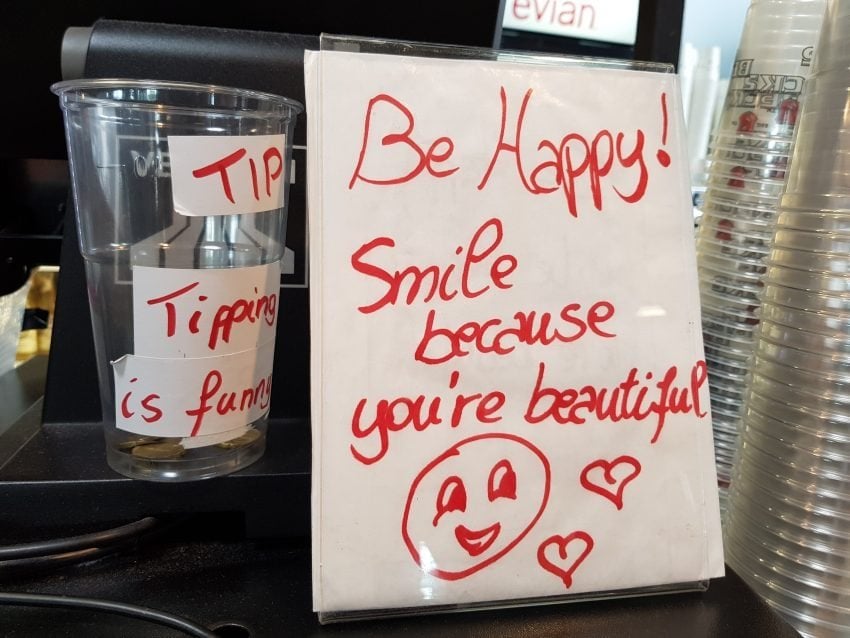 evian
TIP
Tipping
is funny
Be Happy!
Smile
because
you're beautiful